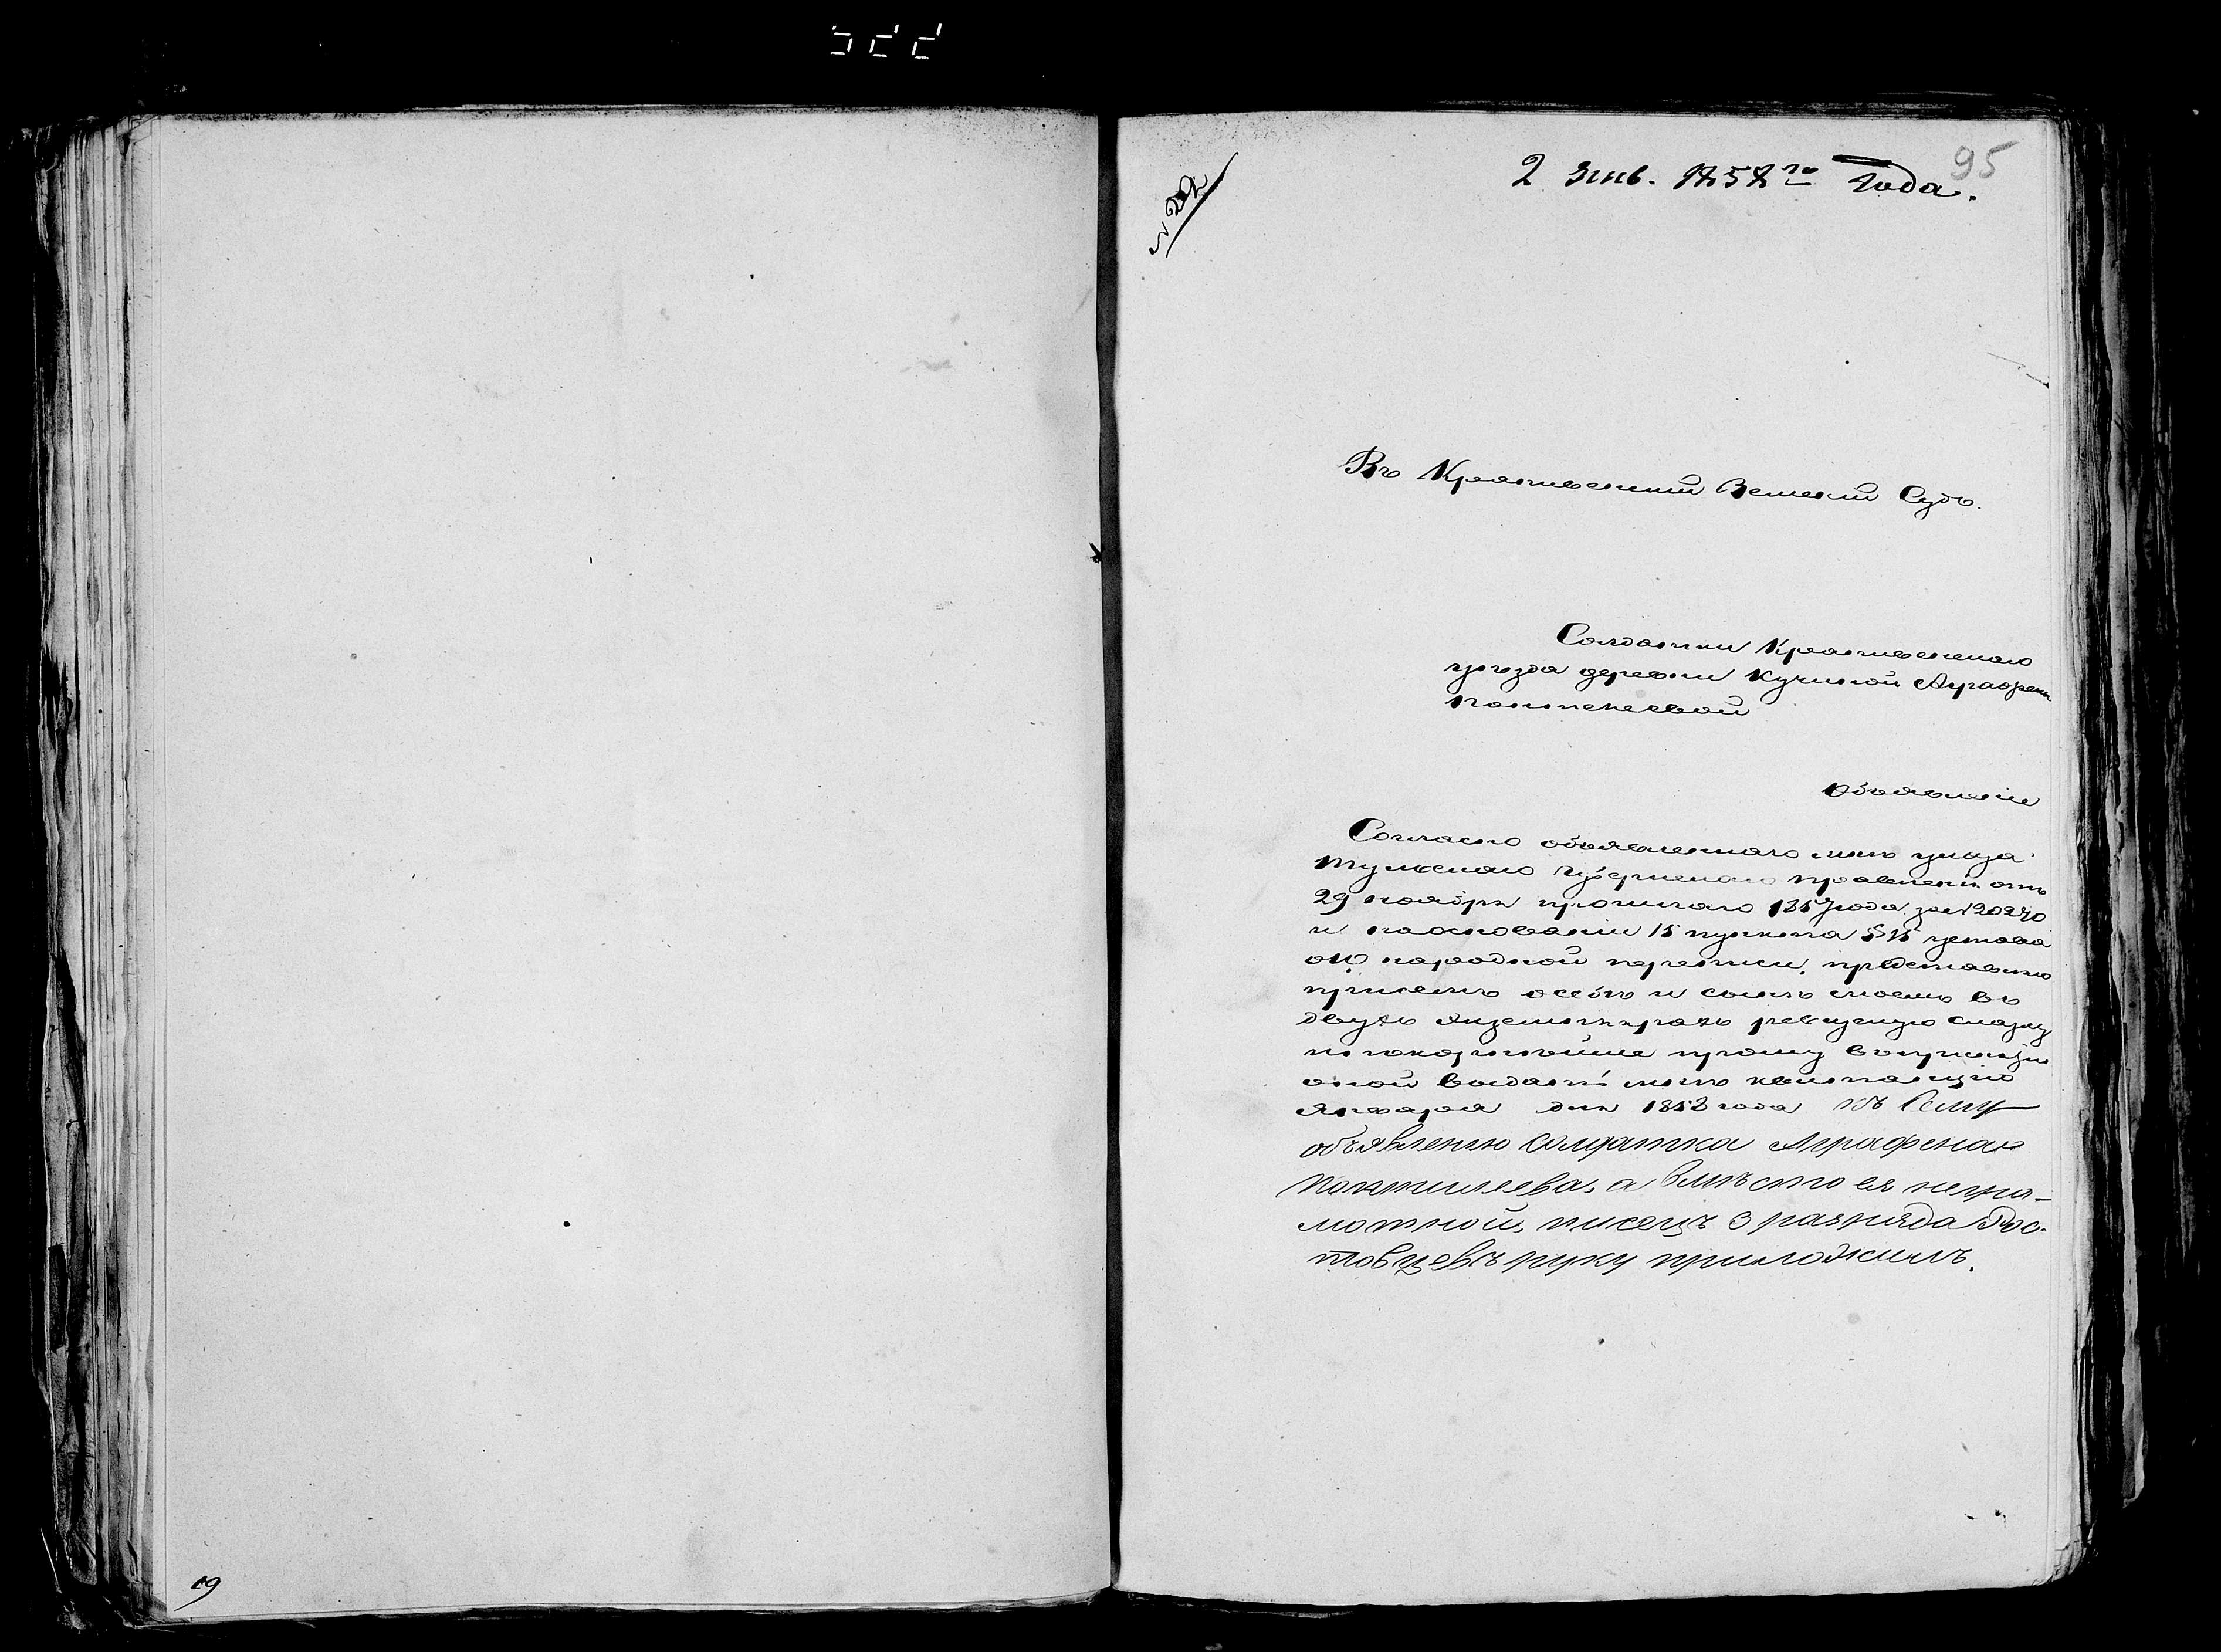 95
2 Янв. 1858го Года.
Въ Крапивенский Земский Судъ.
Солдатки Крапивенскаго
уѣзда деревни Кучиной Аграфены
Пантелеевой
Объявление
Согласно объявленнаго мнѣ указа
Тульскаго Губернскаго Правления отъ
29 ноября прошлаго 1857 года за № 20270
и на основании 15 пункта § 15 устава
о народной переписи, представляю
при семъ о себѣ и сынѣ моемъ въ
двухъ экземплярахъ ревизскую сказку
и покорнѣйше прошу въ приемѣ
оной выдать мнѣ квитанцию
Января дня 1858 года Къ сему
объявлению солдатка Аграфена
Пантилеева, а вмѣсто ея негра-
мотной, писецъ 3 разряда Рос-
товцевъ руку приложилъ.
19